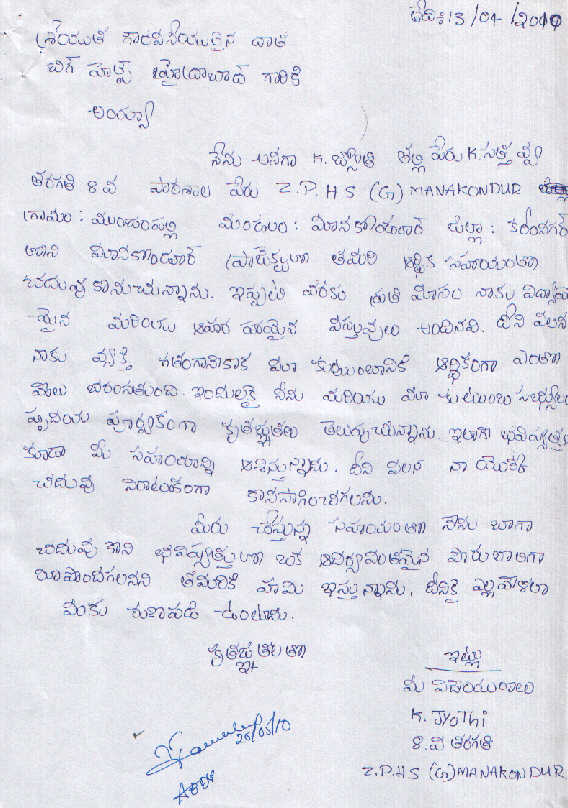 తేది: 13/04/2010
శ్రీయుత గౌరవనీయులైన దాత
బిగ్ హెల్ప్ హైద్రాబాద్ గారికి
అయ్యా
నేను అనగా K. జ్యోతి తల్లి పేరు K.
తరగతి 8 వ పాఠశాల పేరు Z.P.H.S (G) MANAKONDUR
గ్రామం : ముంజంపల్లి మండలం : మానకొండూర్ జిల్లా : కరీంనగర్
అను మానకొండూర్ తమరి ఆర్థిక సహాయంతో
చదువుకొనుచున్నాను. ఇప్పటి వరకు ప్రతి మాసం నాకు
మరియు వస్తువులు అందినవి. దీని వలన
నాకు వ్యక్తి గతంగానికాక మా కుటుంబానికి ఆర్థికంగా ఎంతో
మేలు జరుగుతుంది. ఇందులకై నేను మరియు మా కుటుంబ సభ్యులం
హృదయ పూర్వకంగా కృతజ్ఞతలు తెలుపుచున్నాను ఇలాగే భవిష్యత్తు
కూడా మీ సహాయాన్ని ఆశిస్తున్నాను. దీని వలన నా యొక్క
చదువు నిరాటంకంగా కొనసాగించగలను.
మీరు చేస్తున్న సహాయంతో నేను బాగా
చదువుకొని భవిష్యత్తులో ఒక ఆదర్శవంతమైన పౌరురాలిగా
రూపొందగలనని తమరికి హామి ఇస్తున్నాను. దీనికై ఎల్లవేళలా
మీకు రుణపడి ఉంటాను.
కృతజ్ఞతలతో
ఇట్లు
మీ విధేయురాలు
K. Jyothi
8.వ తరగతి
Z.P.H.S (G) MANAKONDUR
26/05/10